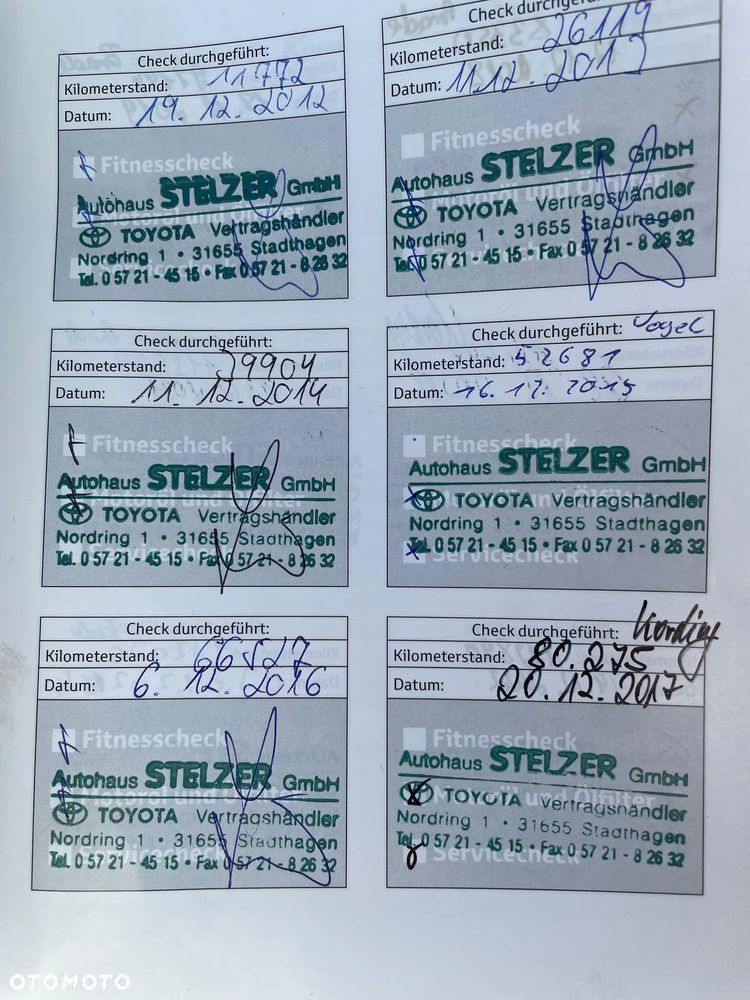 Check durchgeführt:
Kilometerstand: 11772
Datum: 19.12.2012
Fitnesscheck
Autohaus STELZER GmbH
TOYOTA Vertragshändler
Nordring 1 • 31655 Stadthagen
Tel. 0 57 21 - 45 15 • Fax 0 57 21 - 8 26 32
Check durchgeführt:
Kilometerstand: 26119
Datum: 11.12.2013
Fitnesscheck
Autohaus STELZER GmbH
Motoröl und Ölfilter
TOYOTA Vertragshändler
Nordring 1 • 31655 Stadthagen
Tel. 0 57 21 - 45 15 • Fax 0 57 21 - 8 26 32
Check durchgeführt:
Kilometerstand: 39904
Datum: 11.12.2014
Fitnesscheck
Autohaus STELZER GmbH
Motoröl und Ölfilter
TOYOTA Vertragshändler
Nordring 1 • 31655 Stadthagen
Tel. 0 57 21 - 45 15 • Fax 0 57 21 - 8 26 32
Servicecheck
Check durchgeführt: Vogel
Kilometerstand: 52681
Datum: 16.12.2015
Fitnesscheck
Autohaus STELZER GmbH
TOYOTA Vertragshändler
Nordring 1 • 31655 Stadthagen
Tel. 0 57 21 - 45 15 • Fax 0 57 21 - 8 26 32
Servicecheck
Check durchgeführt:
Kilometerstand: 66527
Datum: 6.12.2016
Fitnesscheck
Autohaus STELZER GmbH
Motoröl und Ölfilter
TOYOTA Vertragshändler
Nordring 1 • 31655 Stadthagen
Tel. 0 57 21 - 45 15 • Fax 0 57 21 - 8 26 32
Check durchgeführt:
Kilometerstand: 80.275
Datum: 20.12.2017
Fitnesscheck
Autohaus STELZER GmbH
Motoröl und Ölfilter
TOYOTA Vertragshändler
Nordring 1 • 31655 Stadthagen
Tel. 0 57 21 - 45 15 • Fax 0 57 21 - 8 26 32
Servicecheck
OTOMOTO